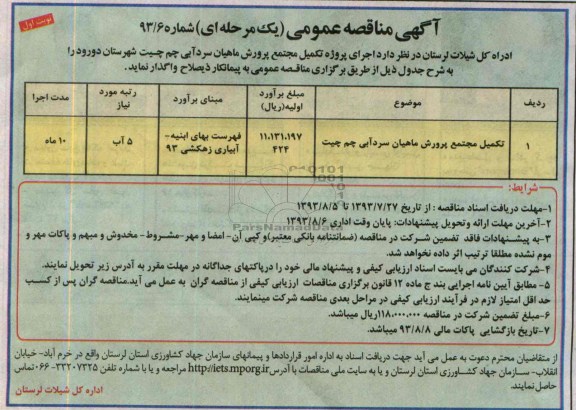 نوبت اول
آگهی مناقصه عمومی (یک مرحله ای) شماره ۹۳/۶
ادراه کل شیلات لرستان در نظر دارد اجرای پروژه تکمیل مجتمع پرورش ماهیان سردآبی چم چیت شهرستان دورود را
به شرح جدول ذیل از طریق برگزاری مناقصه عمومی به پیمانکار ذیصلاح واگذار نماید.
ردیف موضوع مبلغ برآورد اولیه(ریال) مبنای برآورد رتبه مورد نیاز مدت اجرا
۱ تکمیل مجتمع پرورش ماهیان سردآبی چم چیت ۱۱،۱۳۱،۱۹۷ ۴۲۴ فهرست بهای ابنیه- آبیاری زهکشی ۹۳ ۵ آب ۱۰ ماه
شرایط:
۱-مهلت دریافت اسناد مناقصه : از تاریخ ۱۳۹۳/۷/۲۷ تا ۱۳۹۳/۸/۵
۲-آخرین مهلت ارائه وتحویل پیشنهادات: پایان وقت اداری ۱۳۹۳/۸/۶
۳-به پیشنهادات فاقد تضمین شرکت در مناقصه (ضمانتنامه بانکی معتبر)و کپی آن- امضا و مهر-مشروط- مخدوش و مبهم و پاکات مهر و
موم نشده مطلقا ترتیب اثر داده نخواهد شد.
۴-شرکت کنندگان می بایست اسناد ارزیابی کیفی و پیشنهاد مالی خود را درپاکتهای جداگانه در مهلت مقرر به آدرس زیر تحویل نمایند.
۵- مطابق آیین نامه اجرایی بند ج ماده ۱۲ قانون برگزاری مناقصات ارزیابی کیفی از مناقصه گران به عمل می آید.مناقصه گران پس از کسب
حد اقل امتیاز لازم در فرآیند ارزیابی کیفی در مراحل بعدی مناقصه شرکت مینمایند.
۶-مبلغ تضمین شرکت در مناقصه ۱۱۸،۰۰۰،۰۰۰ریال میباشد.
۷-تاریخ بازگشایی پاکات مالی ۹۳/۸/۸ میباشد.
از متقاضیان محترم دعوت به عمل می آید جهت دریافت اسناد به اداره امور قراردادها و پیمانهای سازمان جهاد کشاورزی استان لرستان واقع در خرم آباد- خیابان
انقلاب- سازمان جهاد کشاورزی استان لرستان و یا به سایت ملی مناقصات با آدرس http://iets.mporg.ir مراجعه و یا با شماره تلفن ۳۳۲۰۷۳۲۵-۰۶۶ تماس
حاصل نمایند.
اداره کل شیلات لرستان
ParsNamadData